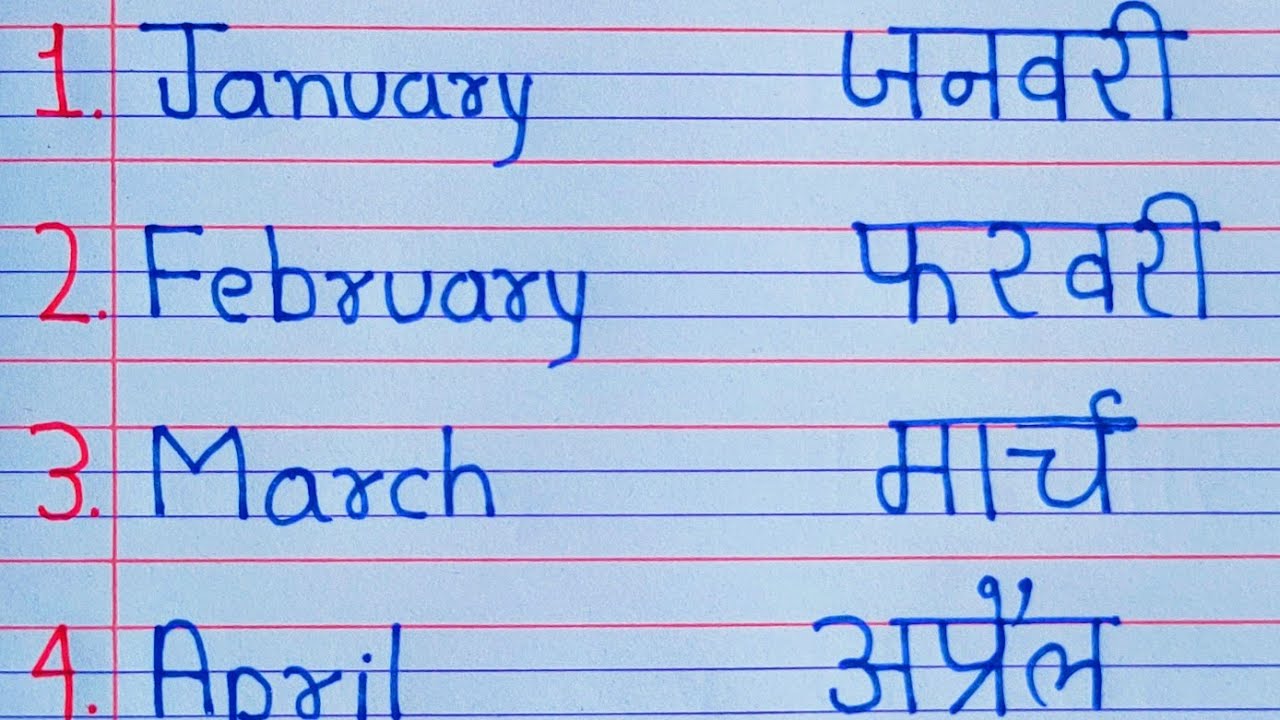 1. January जनवरी
2. February फरवरी
3. March मार्च
4. April अप्रैल